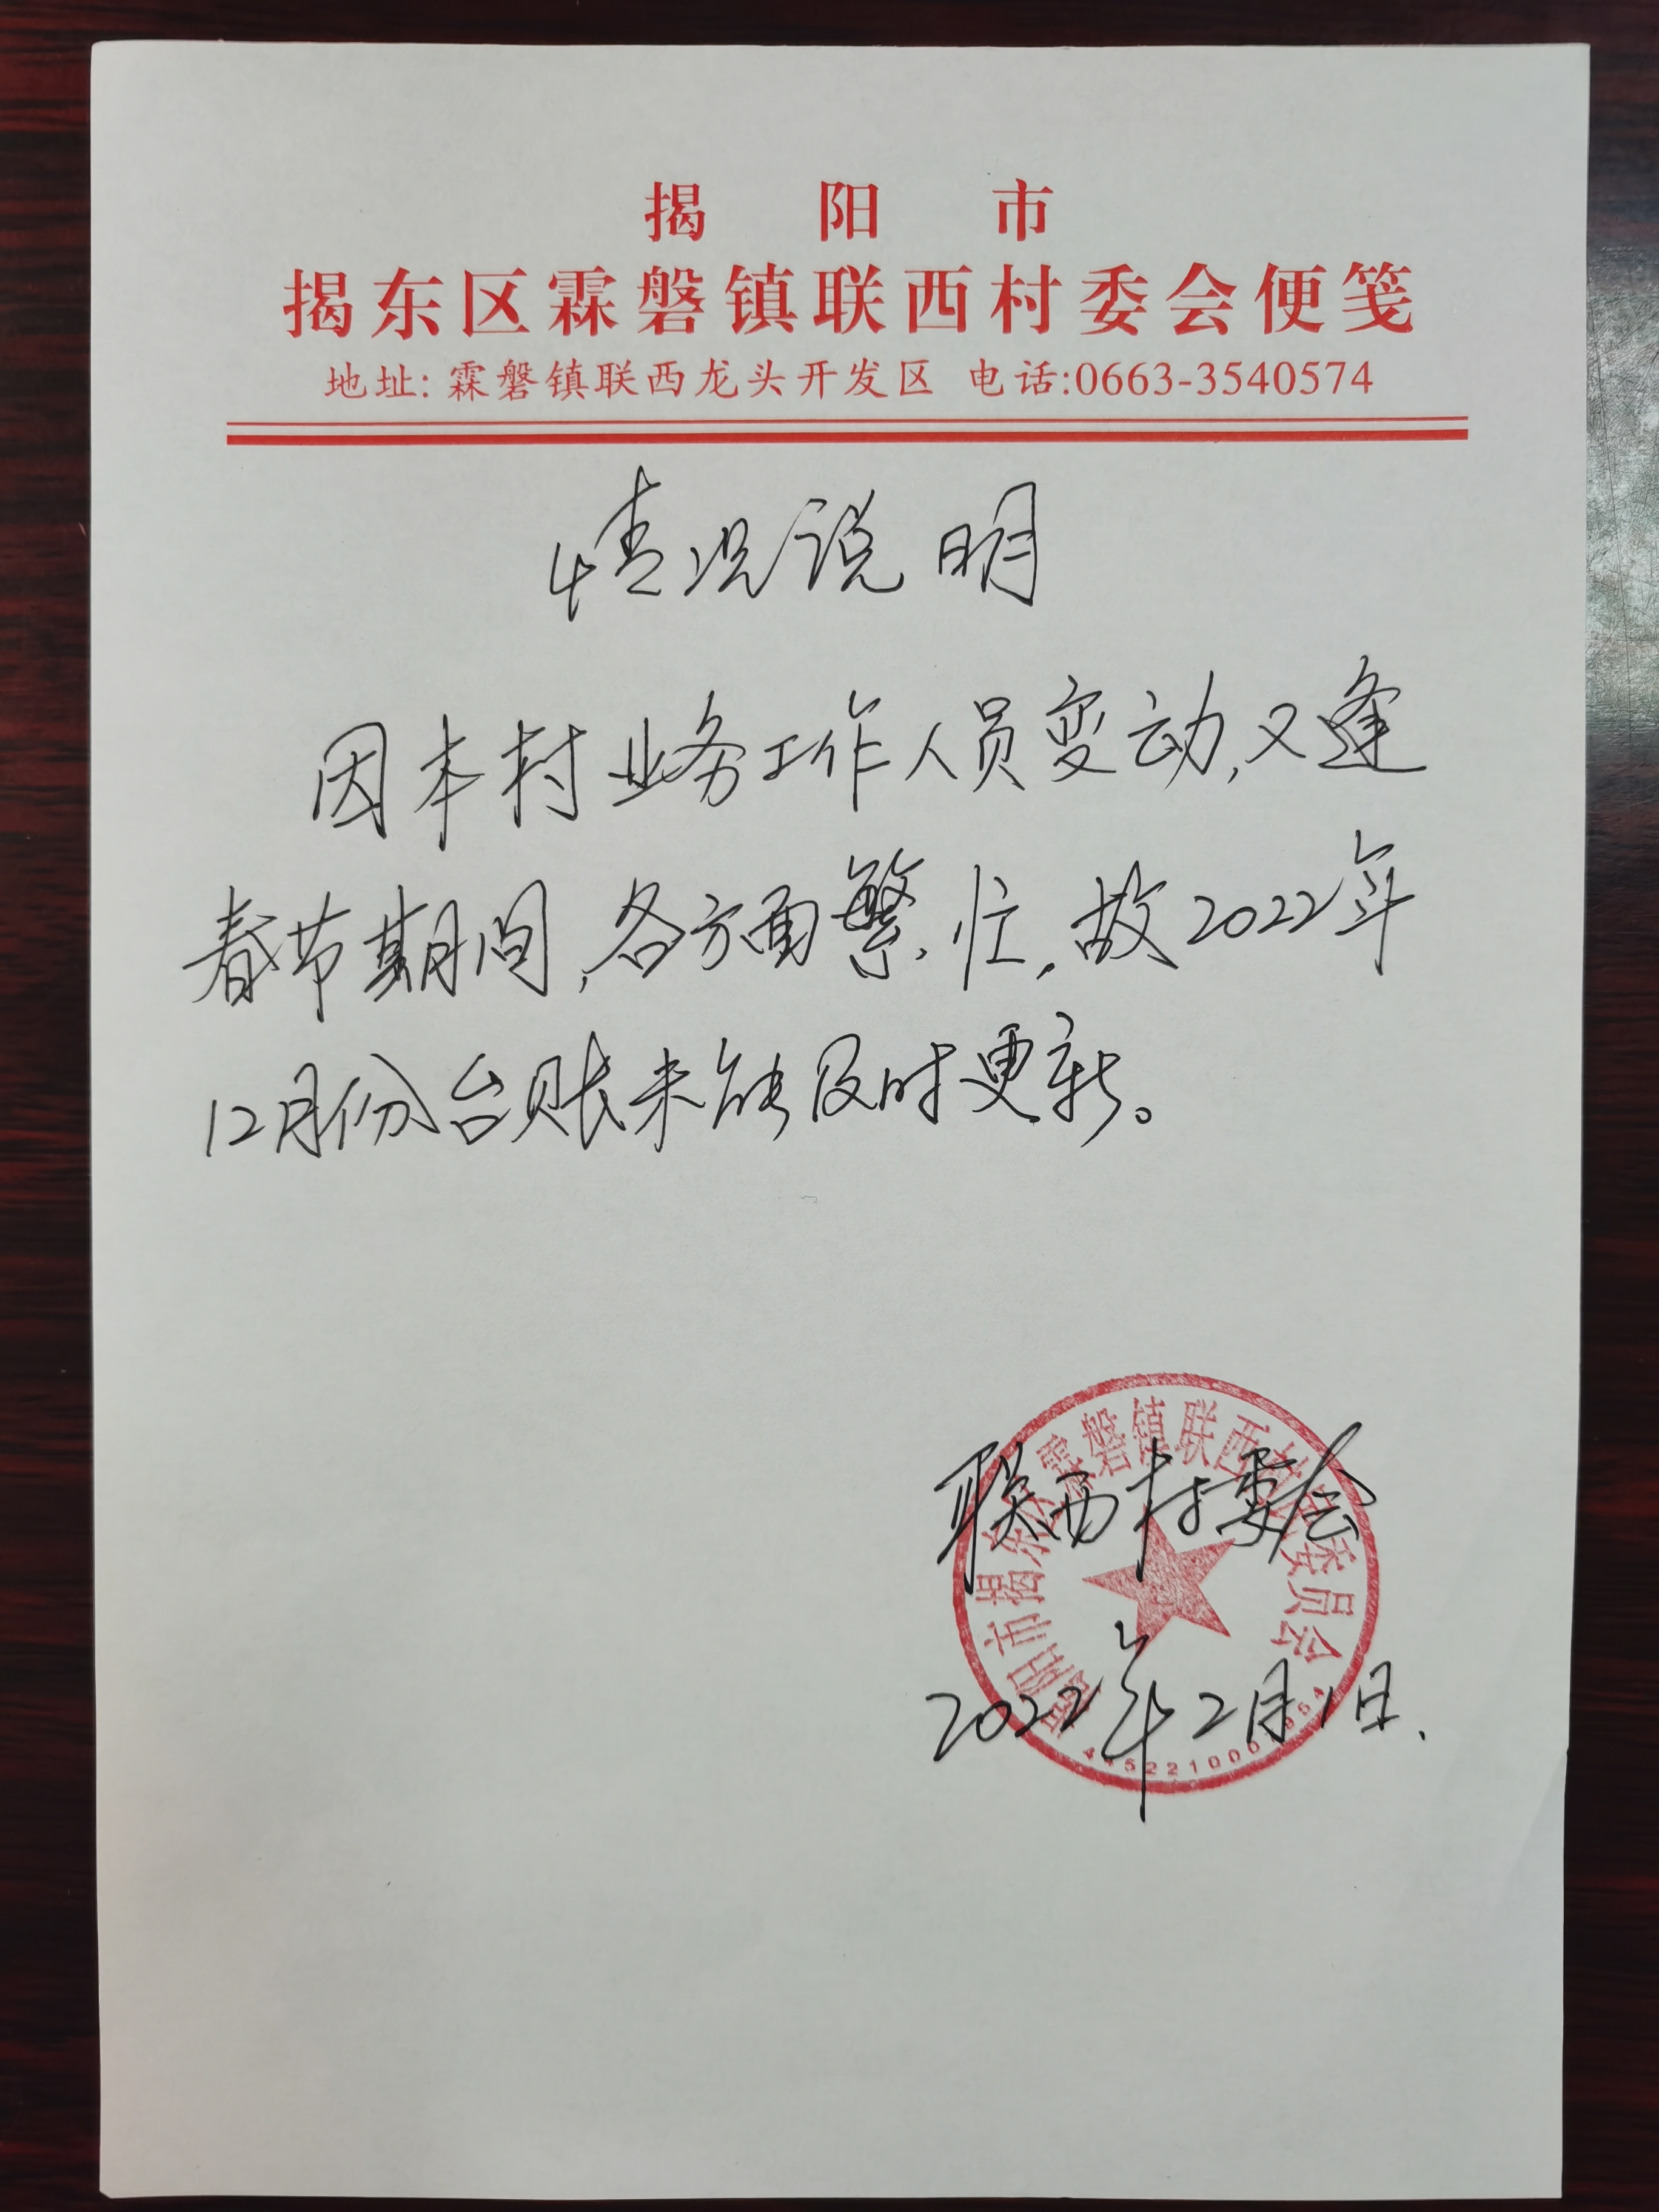 揭阳市
揭东区霖磐镇联西村委会便笺
地址: 霖磐镇联西龙头开发区 电话:0663-3540574
情况说明
因本村业务工作人员变动,又逢
春节期间,各方面繁忙,故2022年
12月份台账未能及时更新。
揭阳市揭东区霖磐镇联西村民委员会
联西村委会
2022年2月1日.